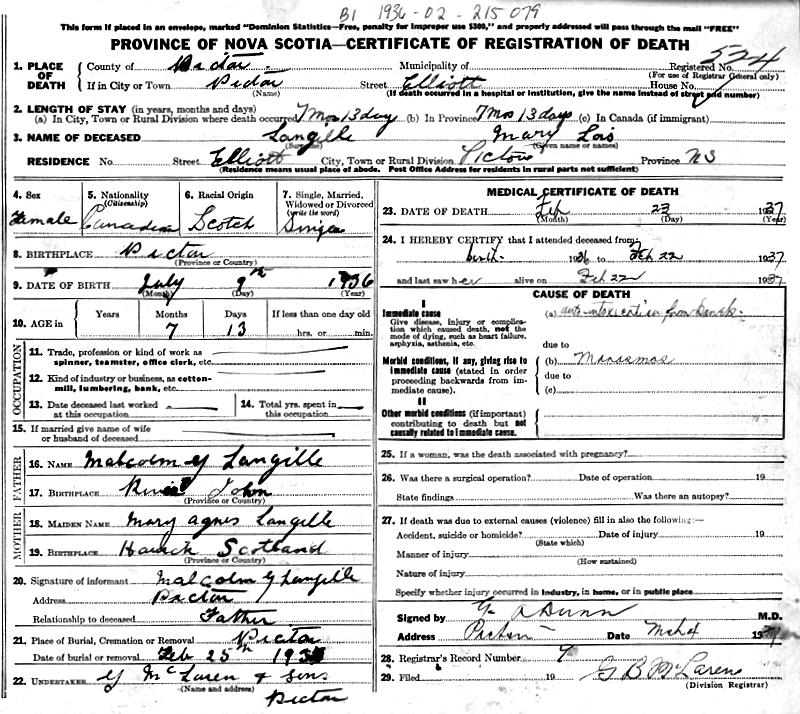 B1 1936-02-215079
This form if placed in an envelope, marked "Dominion Statistics—Free, penalty for improper use $300," and properly addressed will pass through the mail "FREE"
PROVINCE OF NOVA SCOTIA—CERTIFICATE OF REGISTRATION OF DEATH
1. PLACE OF DEATH County of Pictou Municipality of Registered No. 524
(For use of Registrar General only)
If in City or Town Pictou Street Elliott House No.
(Name) (If death occurred in a hospital or institution, give the name instead of street and number)
2. LENGTH OF STAY (in years, months and days)
(a) In City, Town or Rural Division where death occurred 7 Mos 13 day (b) In Province 7 Mos 13 days (c) In Canada (if immigrant)
3. NAME OF DECEASED Langille Mary Lois
(Surname) (Given name or names)
RESIDENCE No. Street Elliott City, Town or Rural Division Pictou Province NS
(Residence means usual place of abode. Post Office Address for residents in rural parts not sufficient)
4. Sex Female
5. Nationality (Citizenship) Canadian
6. Racial Origin Scotch
7. Single, Married, Widowed or Divorced (write the word) Single
8. BIRTHPLACE Pictou
(Province or Country)
9. DATE OF BIRTH July 9th 1936
(Month) (Day) (Year)
10. AGE in Years Months 7 Days 13 If less than one day old hrs. or min.
OCCUPATION
11. Trade, profession or kind of work as spinner, teamster, office clerk, etc.
12. Kind of industry or business, as cotton-mill, lumbering, bank, etc.
13. Date deceased last worked at this occupation
14. Total yrs. spent in this occupation
15. If married give name of wife or husband of deceased
FATHER
16. NAME Malcolm G Langille
17. BIRTHPLACE River John
(Province or Country)
MOTHER
18. MAIDEN NAME Mary Agnes Langille
19. BIRTHPLACE Hawick Scotland
(Province or Country)
20. Signature of informant Malcolm G Langille
Address Pictou
Relationship to deceased Father
21. Place of Burial, Cremation or Removal Pictou
Date of burial or removal Feb 25th 1937
22. UNDERTAKER McLaren & Sons
(Name and address) Pictou
MEDICAL CERTIFICATE OF DEATH
23. DATE OF DEATH Feb 23 1937
(Month) (Day) (Year)
24. I HEREBY CERTIFY that I attended deceased from:
birth 1936 to Feb 22 1937
and last saw her alive on Feb 22 1937
CAUSE OF DEATH
I
Immediate cause
Give disease, injury or complication which caused death, not the mode of dying, such as heart failure, asphyxia, asthenia, etc.
(a) auto intoxication from
due to
Morbid conditions, if any, giving rise to immediate cause (stated in order proceeding backwards from immediate cause).
(b) Marasmos
due to
(c)
II
Other morbid conditions (if important) contributing to death but not causally related to immediate cause.
25. If a woman, was the death associated with pregnancy?
26. Was there a surgical operation? Date of operation 19
State findings Was there an autopsy?
27. If death was due to external causes (violence) fill in also the following:—
Accident, suicide or homicide? Date of injury 19
(State which)
Manner of injury
(How sustained)
Nature of injury
Specify whether injury occurred in industry, in home, or in public place
Signed by G A Dunn M.D.
Address Pictou Date Mch 4 1937
28. Registrar's Record Number 9
29. Filed 19 G B McLaren
(Division Registrar)